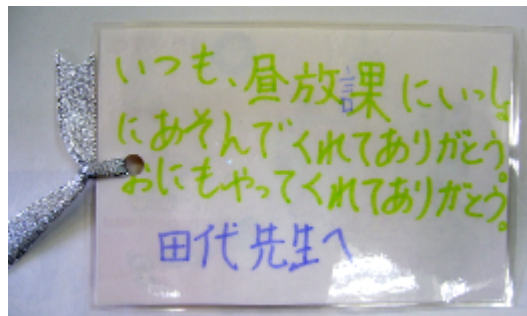 いつも、昼放課にいっし。
にあそんでくれてありがとう。
おにもやってくれてありがとう。
田代先生へ